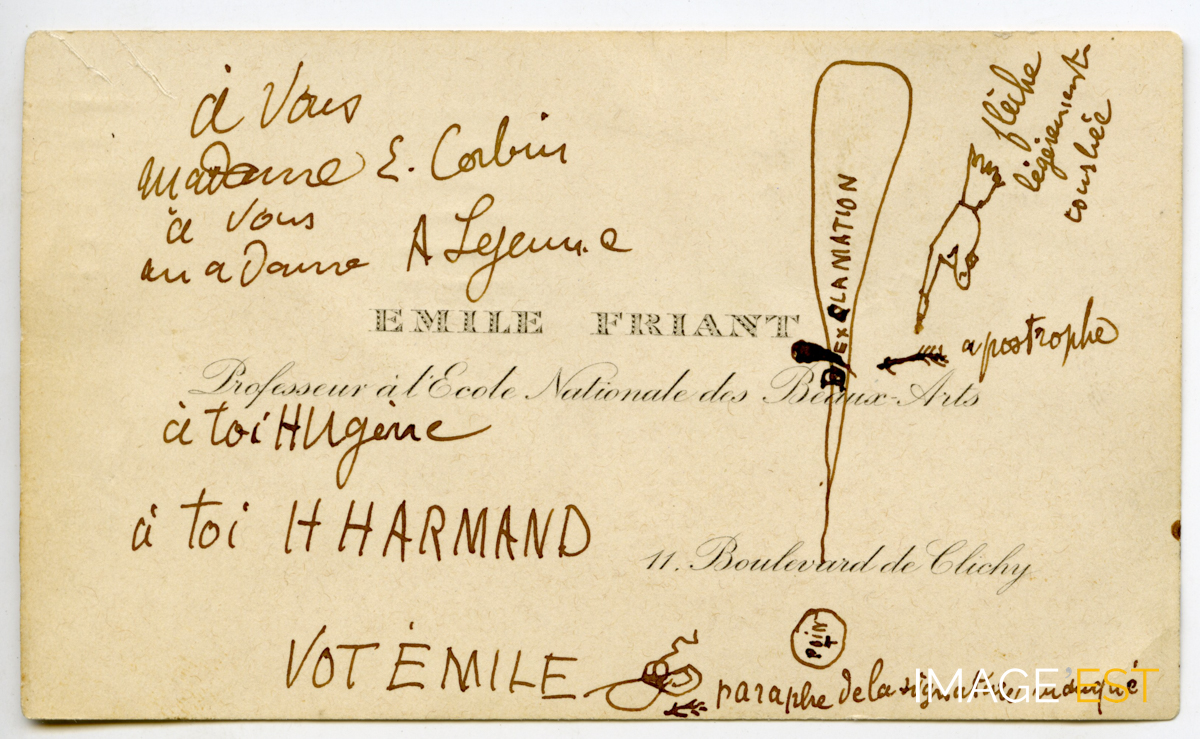 à Vous
madame E. Corbin
à vous
madame A Lejeune
EMILE FRIANT
Professeur à l'Ecole Nationale des Beaux-Arts
à toi HUgène
à toi H HARMAND
11. Boulevard de Clichy
VOT ÉMILE
D'EXCLAMATION
POINT
flèche
légèrement
courbée
apostrophe
paraphe de la
IMAGE'EST